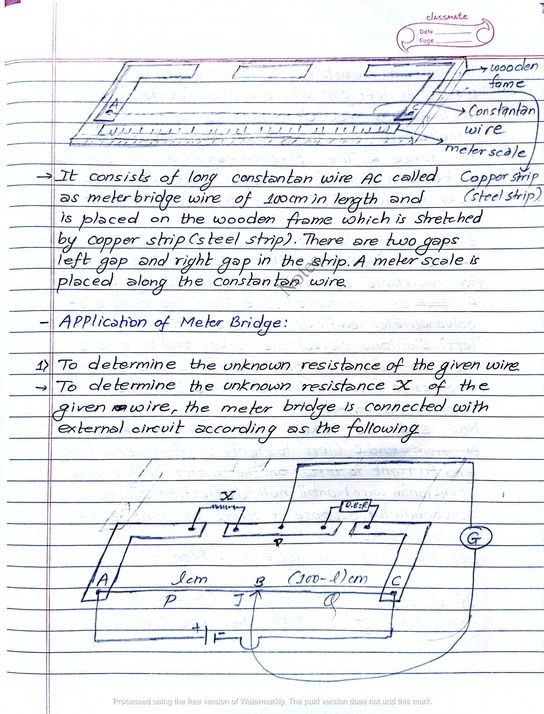 classmate
Date
Page
wooden
fame
A
C
Constantan
wire
meter scale
Copper strip
(steel strip)
→ It consists of long constantan wire AC called
as meter bridge wire of 100cm in length and
is placed on the wooden frame which is stretched
by copper strip (steel strip). There are two gaps
left gap and right gap in the strip. A meter scale is
placed along the constantan wire.
- Application of Meter Bridge:
1) To determine the unknown resistance of the given wire.
→ To determine the unknown resistance X of the
given wire, the meter bridge is connected with
external circuit according as the following
X
G
A
lcm
B
(100-l)cm
C
P
J
Q
+
-
Processed using the free version of Watermarkly. The paid version does not add this mark.